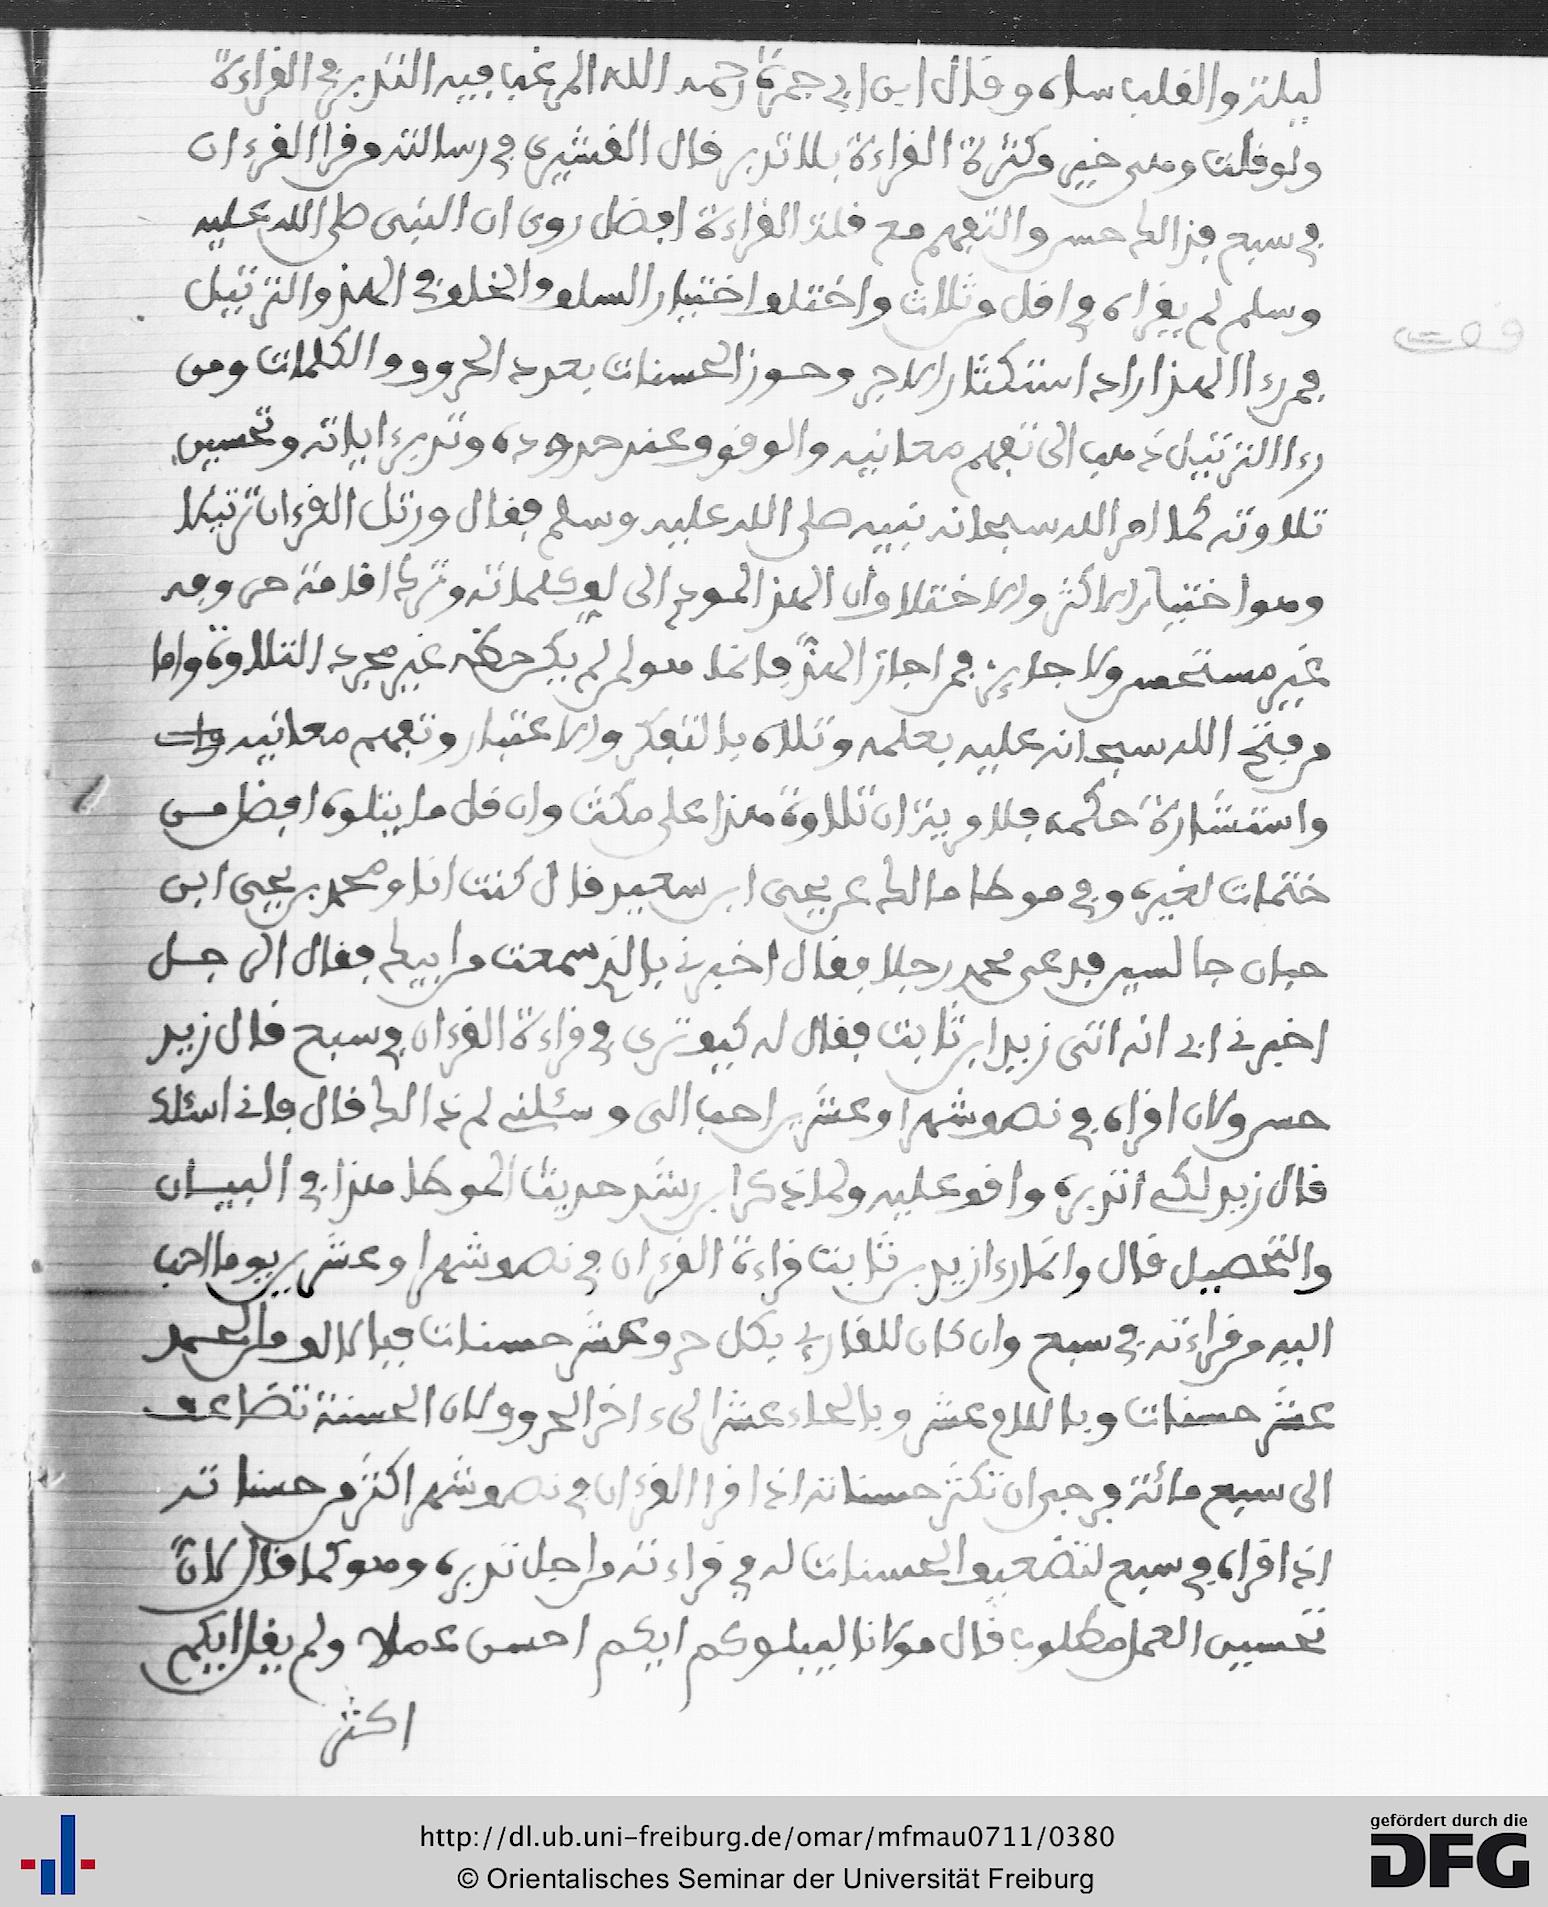 ليلة والقلب ساه وقال ابن ابي جمرة رحمه الله المرغب فيه التدبر في القراءة
ولو قلت وهي خير من كثرة القراءة بلا تدبر قال القشيري في رسالته من قرا القرءان
في سبع فذالك حسن والتفهم مع قلة القراءة افضل روي ان النبي صلى الله عليه
وسلم لم يقراه في اقل من ثلاث واختلف اختيار السلف والخلف في الهذ والترتيل
فمن رءا الهذ اراد استكثار الاجر وحوز الحسنات بعدد الحروف والكلمات ومن
رءا الترتيل ذهب الى تفهم معانيه والوقوف عند حدوده وتدبر ءاياته وتحسين
تلاوته كما امر الله سبحانه نبيه صلى الله عليه وسلم فقال ورتل القرءان ترتيلا
وهو اختيار الاكثر ولا اختلاف ان الهذ المودي الى لف كلماته وترك اقامة حروفه
غير مستحسن ولا جايز فمن اجاز الهذ فانما هو لمن لم يكن حظه غير مجرد التلاوة واما
من فتح الله سبحانه عليه بعلمه وتلاه بالتفكر والاعتبار وتفهم معانيه
واستشارة حكمه فلا مرية ان تلاوة هذا على مكث وان قل ما يتلوه افضل من
ختمات لغيره وفي موطا مالك عن يحيى ابن سعيد قال كنت انا ومحمد بن يحيى ابن
حبان جالسين فدعى محمد رجلا فقال اخبرني بالذي سمعت من ابيك فقال الرجل
اخبرني ابي انه اتى زيد ابن ثابت فقال له كيف ترى في قراءة القرءان في سبع قال زيد
حسن ولان اقراه في نصف شهر او عشرين احب الي وسئلني لم ذالك قال فاني اسئلك
قال زيد لكي اتدبره واقف عليه ولما ذكر ابن رشد حديث الموطا هذا في البيان
والتحصيل قال وانما رءا زيد بن ثابت قراءة القرءان في نصف شهر او عشرين يوما احب
اليه من قراءته في سبع وان كان للقارئ بكل حرف عشر حسنات فبالالف من الحمد
عشر حسنات وباللام عشر وبالحاء عشر الى ءاخر الحروف لان الحسنة تضاعف
الى سبع مائة فوجب ان تكثر حسناته اذا قرا القرءان في نصف شهر اكثر من حسناته
اذا قراه في سبع لتضعيف الحسنات له في قراءته من اجل تدبره وهو كما قال لان
تحسين العمل مطلوب قال مولانا ليبلوكم ايكم احسن عملا ولم يقل ايكم
اكثر
http://dl.ub.uni-freiburg.de/omar/mfmau0711/0380
© Orientalisches Seminar der Universität Freiburg
gefördert durch die
DFG